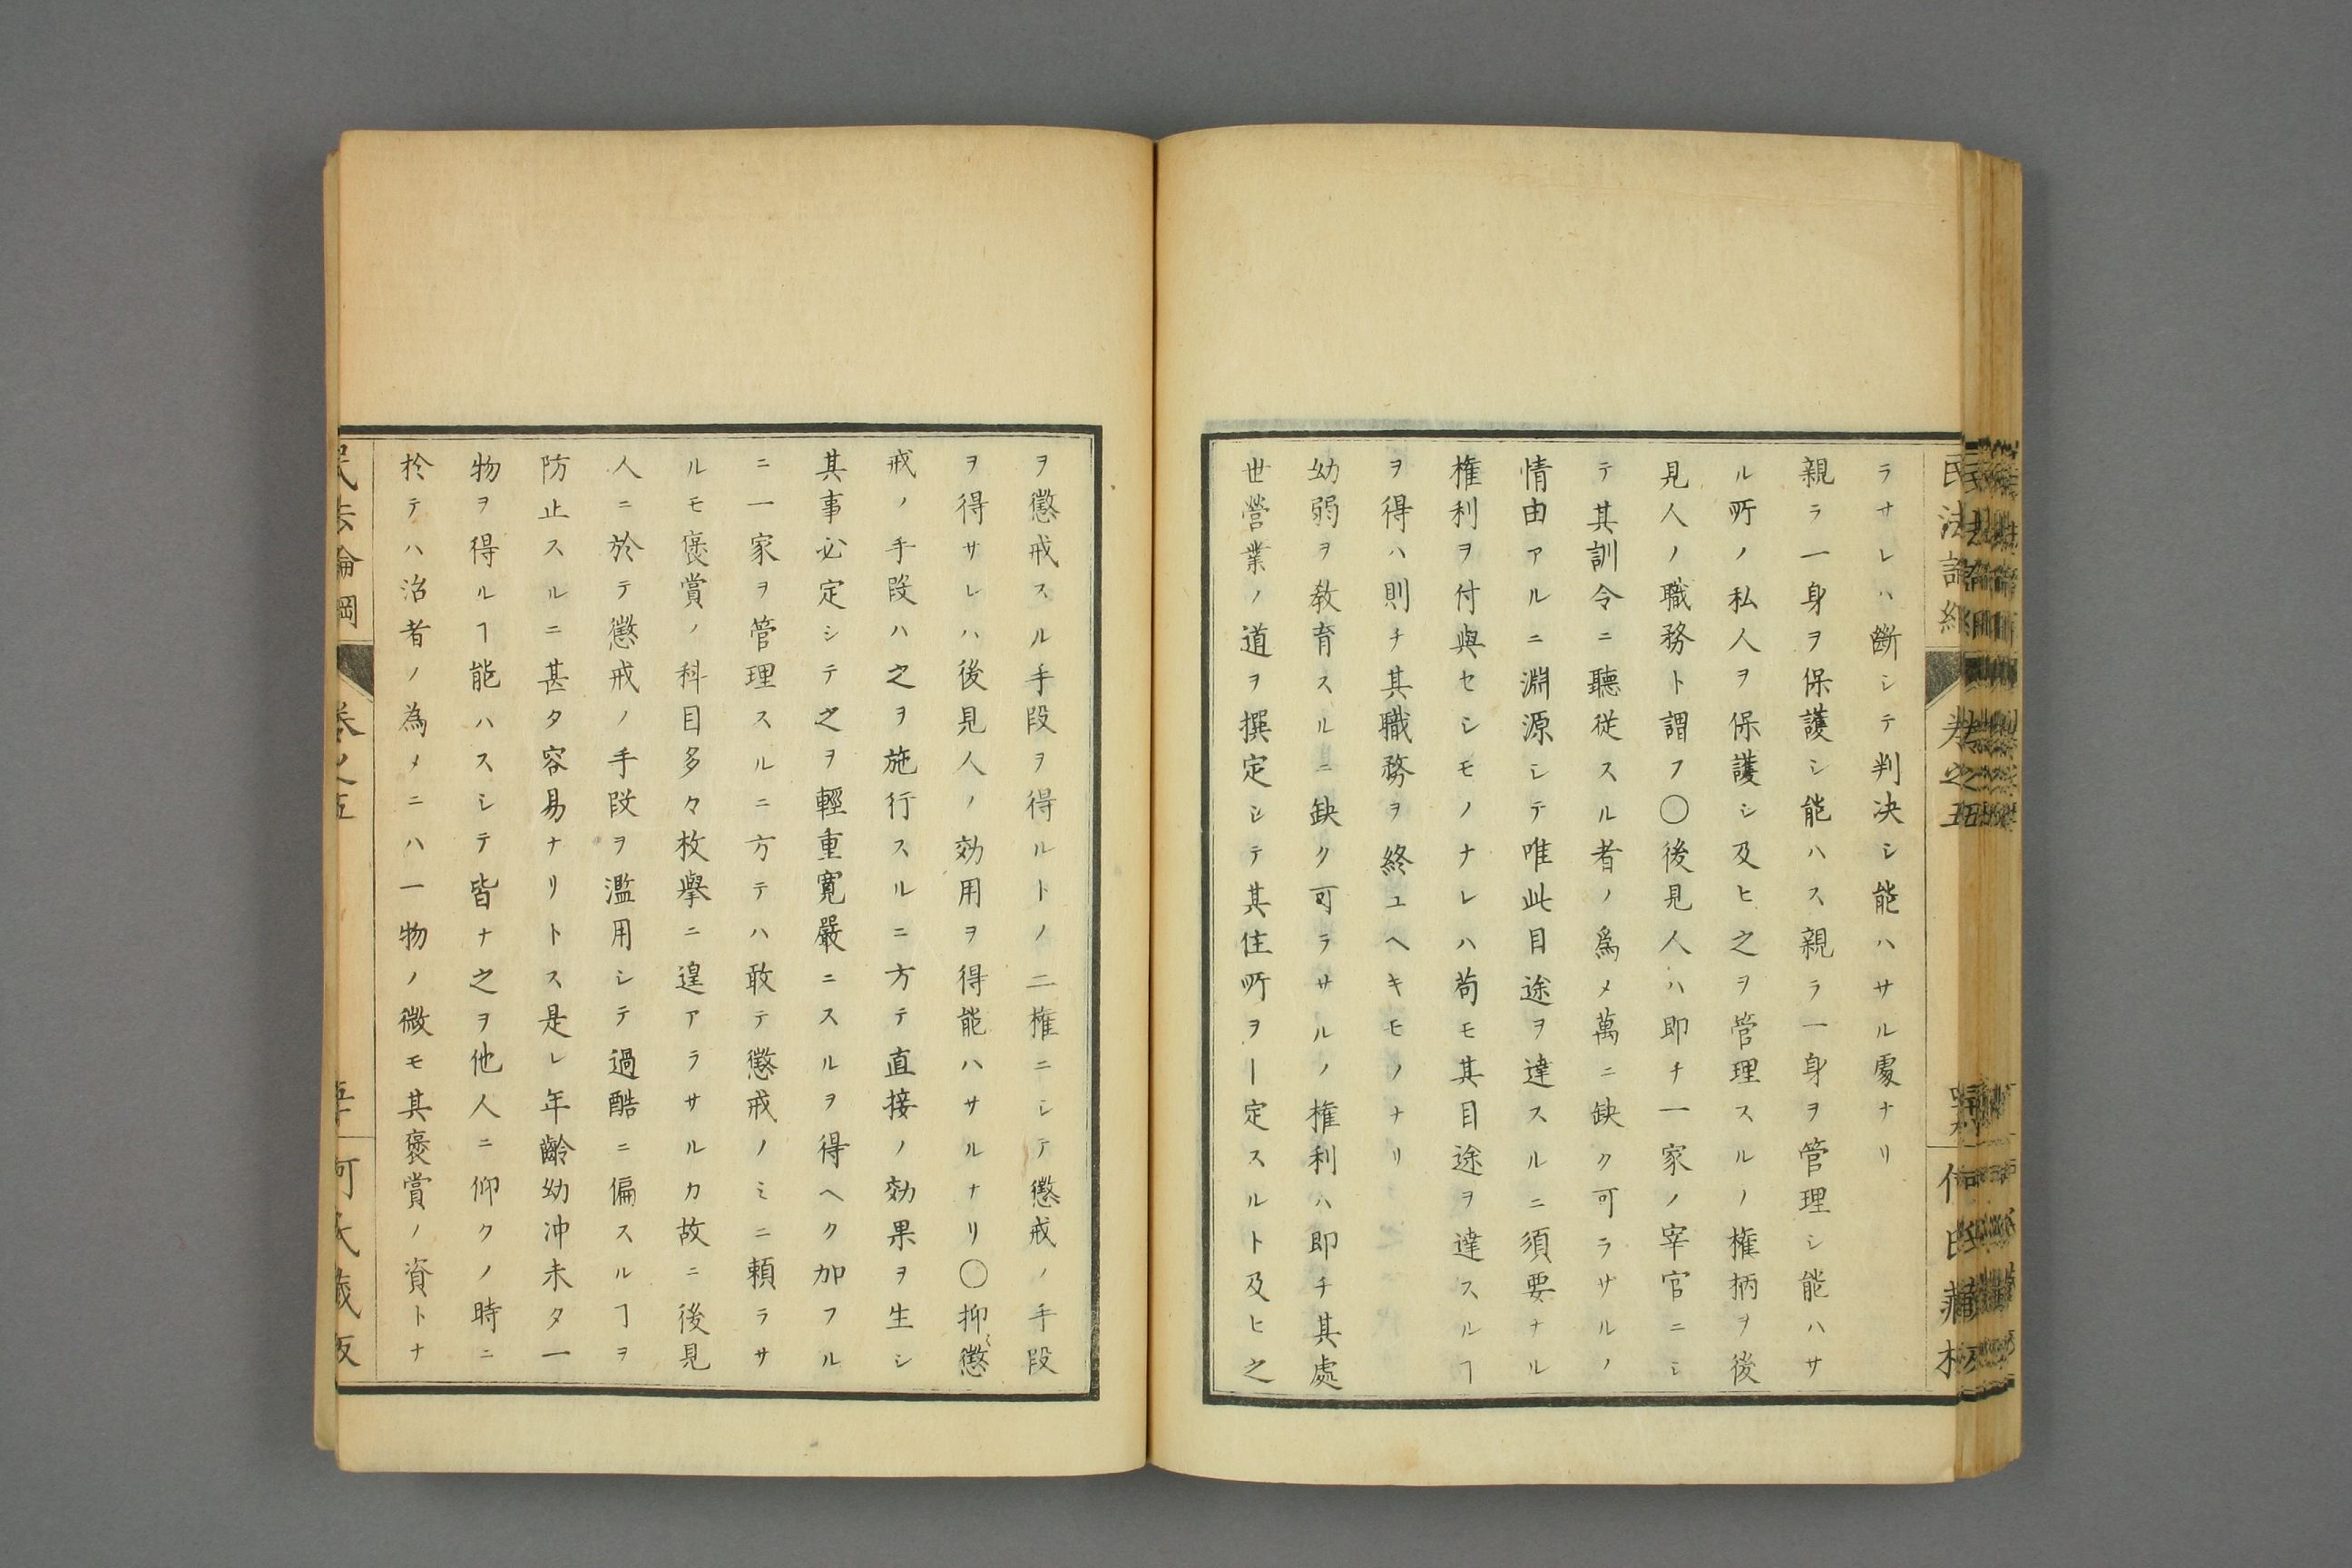 ラナレハ斷シテ判决シ能ハサル處ナリ
親ラ一身ヲ保護シ能ハス親ラ一身ヲ管理シ能ハサ
ル所ノ私人ヲ保護シ及ヒ之ヲ管理スルノ権柄ヲ後
見人ノ職務ト謂フ〇後見人ハ即チ一家ノ宰官ニシ
テ其訓令ニ聽從スル者ノ爲メ萬ニ缺ク可ラサルノ
情由アルニ淵源シテ唯此目途ヲ達スルニ須要ナル
権利ヲ付與セシモノナレハ苟モ其目途ヲ達スルヿ
ヲ得ハ則チ其職務ヲ終ユヘキモノナリ
幼弱ヲ教育スルニ缺ク可ラサルノ権利ハ即チ其處
世營業ノ道ヲ撰定シテ其住所ヲ一定スルト及ヒ之
ヲ懲戒スル手段ヲ得ルトノ二権ニシテ懲戒ノ手段
ヲ得サレハ後見人ノ効用ヲ得能ハサルナリ〇抑懲
戒ノ手段ハ之ヲ施行スルニ方テ直接ノ効果ヲ生シ
其事必定シテ之ヲ輕重寛嚴ニスルヲ得ヘク加フル
ニ一家ヲ管理スルニ方テハ敢テ懲戒ノミニ頼ラサ
ルモ褒賞ノ科目多々枚擧ニ遑アラサルカ故ニ後見
人ニ於テ懲戒ノ手段ヲ濫用シテ過酷ニ偏スルヿヲ
防止スルニ甚タ容易ナリトス是レ年齡幼冲未タ一
物ヲ得ルヿ能ハスシテ皆ナ之ヲ他人ニ仰クノ時ニ
於テハ治者ノ為メニハ一物ノ微モ其褒賞ノ資トナ
民法論綱
卷之五
何氏藏板